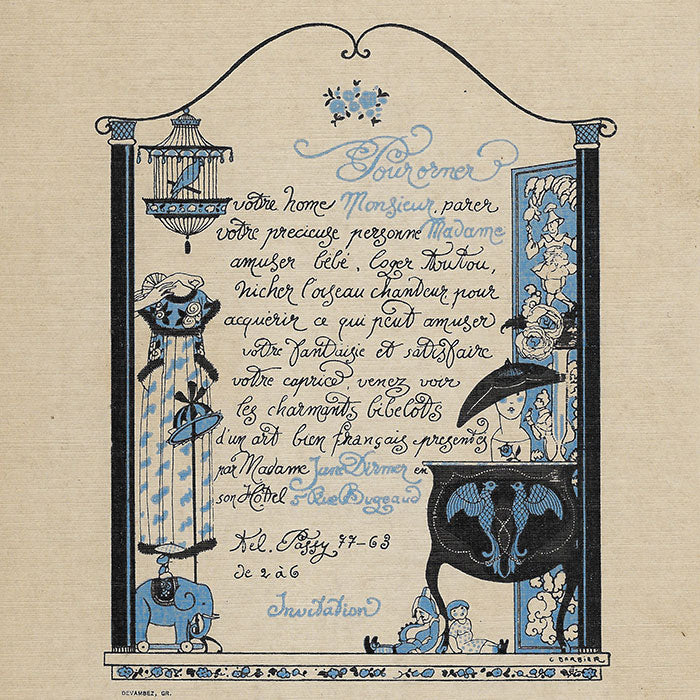 Pour orner
votre home Monsieur, parer
votre precieuse personne Madame
amuser bébé, loger Toutou,
nicher l'oiseau chanteur, pour
acquerir ce qui peut amuser
votre fantaisie et satisfaire
votre caprice, venez voir
les charmants bibelots
d'un art bien français presentés
par Madame Jane Dirmer en
son Hôtel 5 Rue Bugeaud
Tel. Passy 77-63
de 2 à 6
Invitation
G BARBIER
DEVAMBEZ, GR.